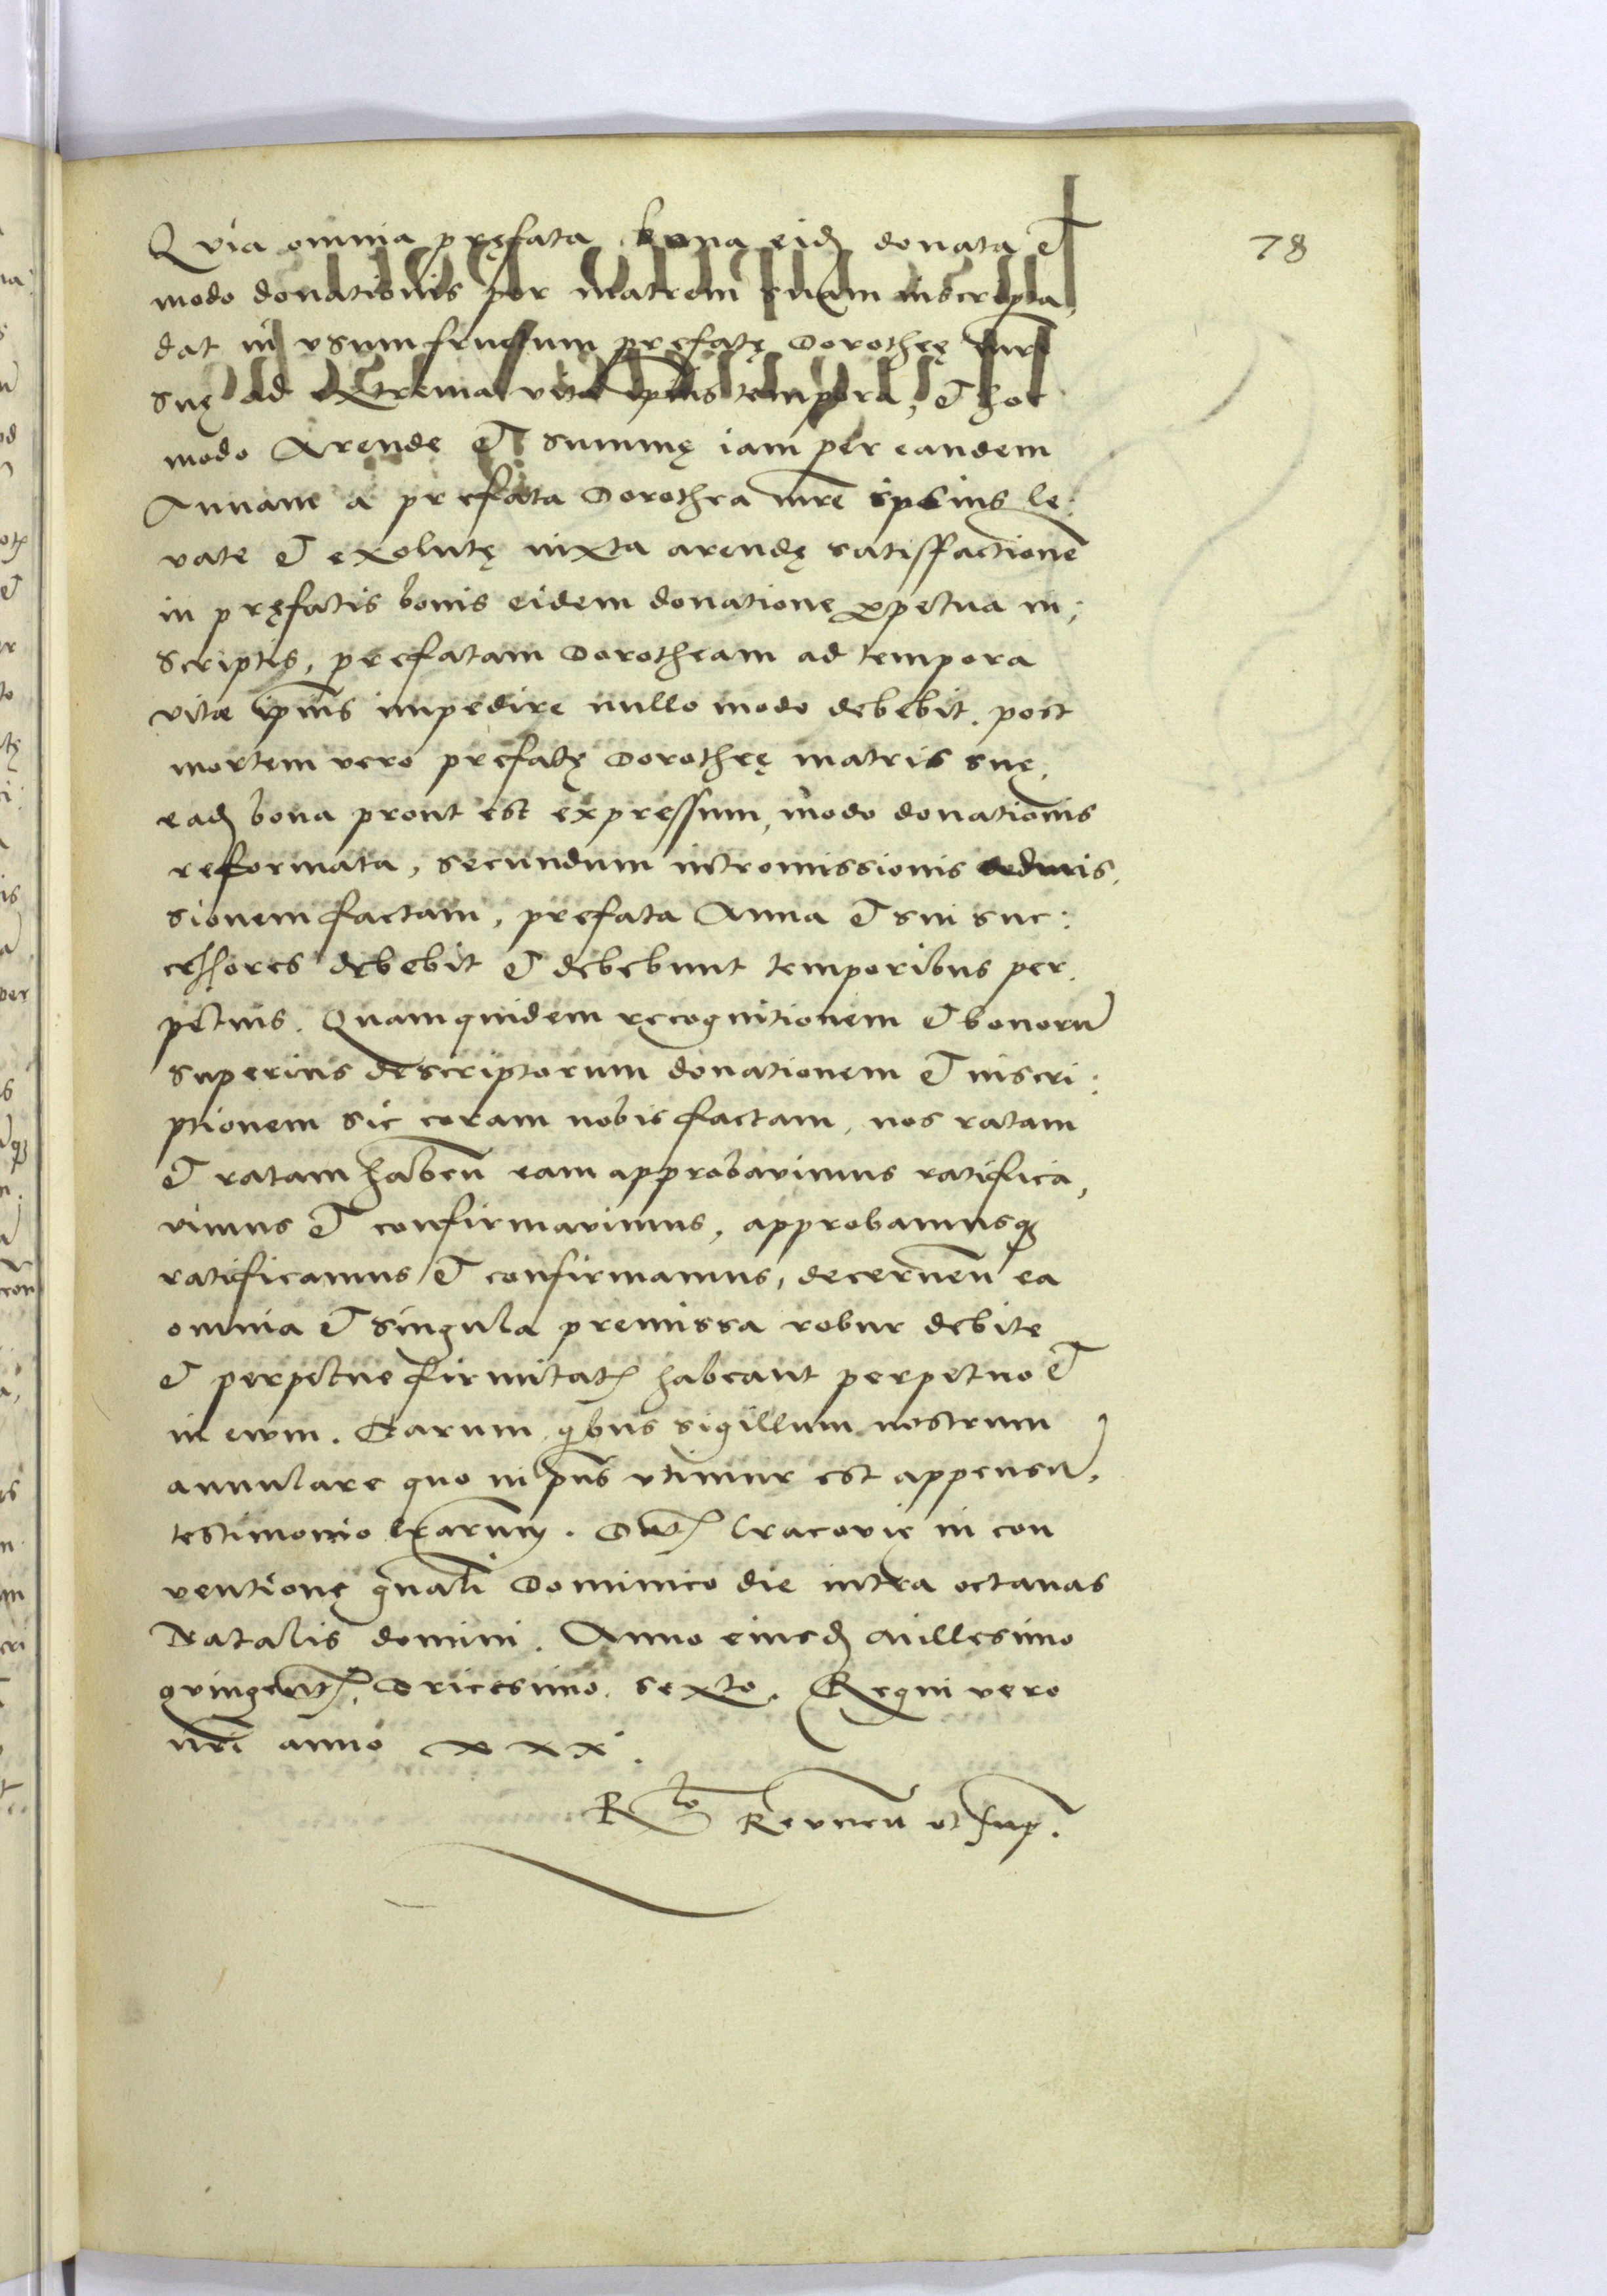 78
Quia omnia pręfata bona eid donata et
modo donationis per matrem suam inscripta,
dat in vsumfructum prefatę Dorotheę mrĩ
suę ad extrema vitę ipius tempora, et hoc
modo Arende et summę iam per eandem
Annam a prefata Dorothea mrẽ ipsius le:
vate et exolutę iuxta arendę satisfactionẽ
in pręfatis bonis eidem donatione ꝑpetua in:
scriptis, prefatam Dorotheam ad tempora
vitæ ipius impedire nullo modo debebit. post
mortem vero prefatę Dorotheę matris suę,
ead bona prout est expressum, modo donationis
reformata, secundum intromissionis admis,
sionem factam, prefata Anna et sui suc:
cessores debebit et debebunt temporibus per
petuis. Quamquidem recognitionem et bonorũ
superius descriptorum donationem et inscri:
ptionem sic coram nobis factam, nos ratam
et ratam habeñ eam approbavimus ratifica,
vimus et confirmavimus, approbamusqꝫ
ratificamus et confirmamus, decerneñ ea
omnia et singula premissa robur debite
et perpetue firmitatꝭ habeant perpetuo et
in ewm. Harum qbus sigillum nostrum
annulare quo in pñs vtimur est appensũ,
testimonio lrarum. Datꝭ Cracovię in con
ventione gnali Dominico die intra octauas
Natalis domini. Anno eiusd Millesimo
quingentꝭ, Tricesimo sexto. Regni vero
nrĩ anno xxx.
Rlo Reuneñ vt sup.